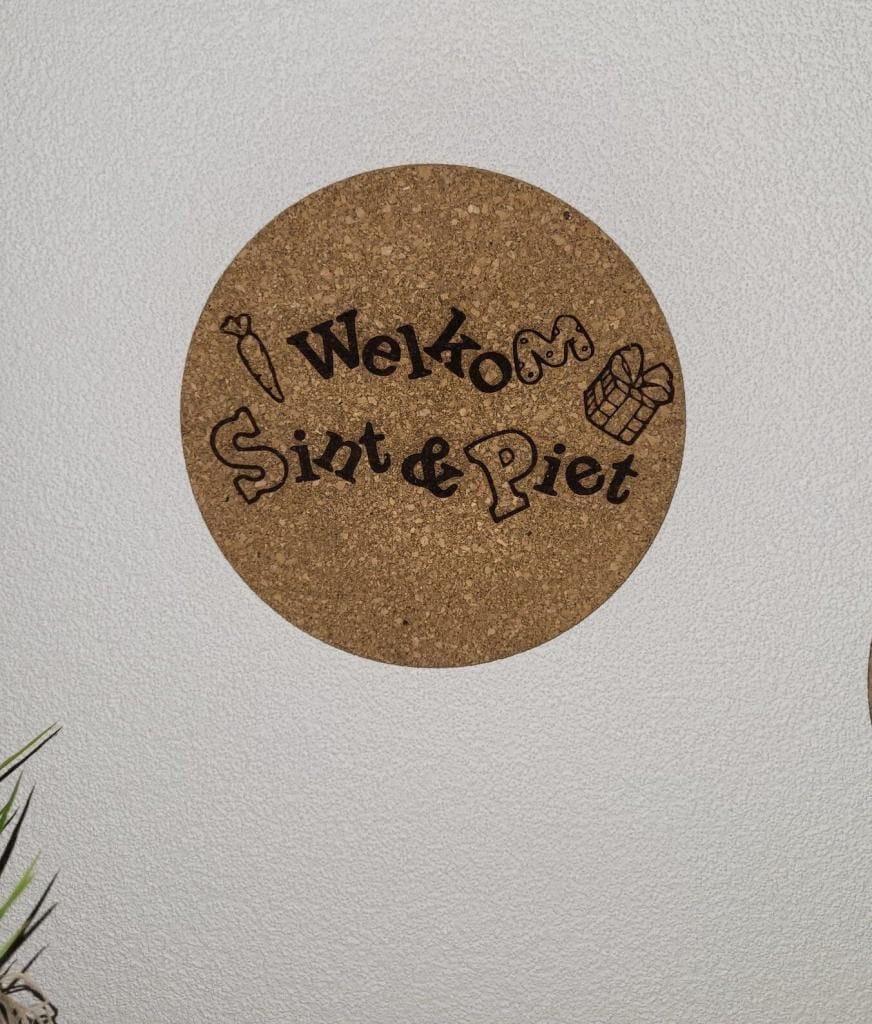 WelkoM
Sint & Piet